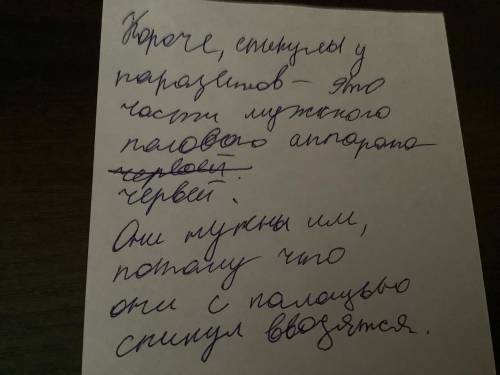 Короче, спикулы у
паразитов - это
части мужского
полового аппарата
червей.
червей.
Они нужны им,
потому что
они с помощью
спикул вводятся.